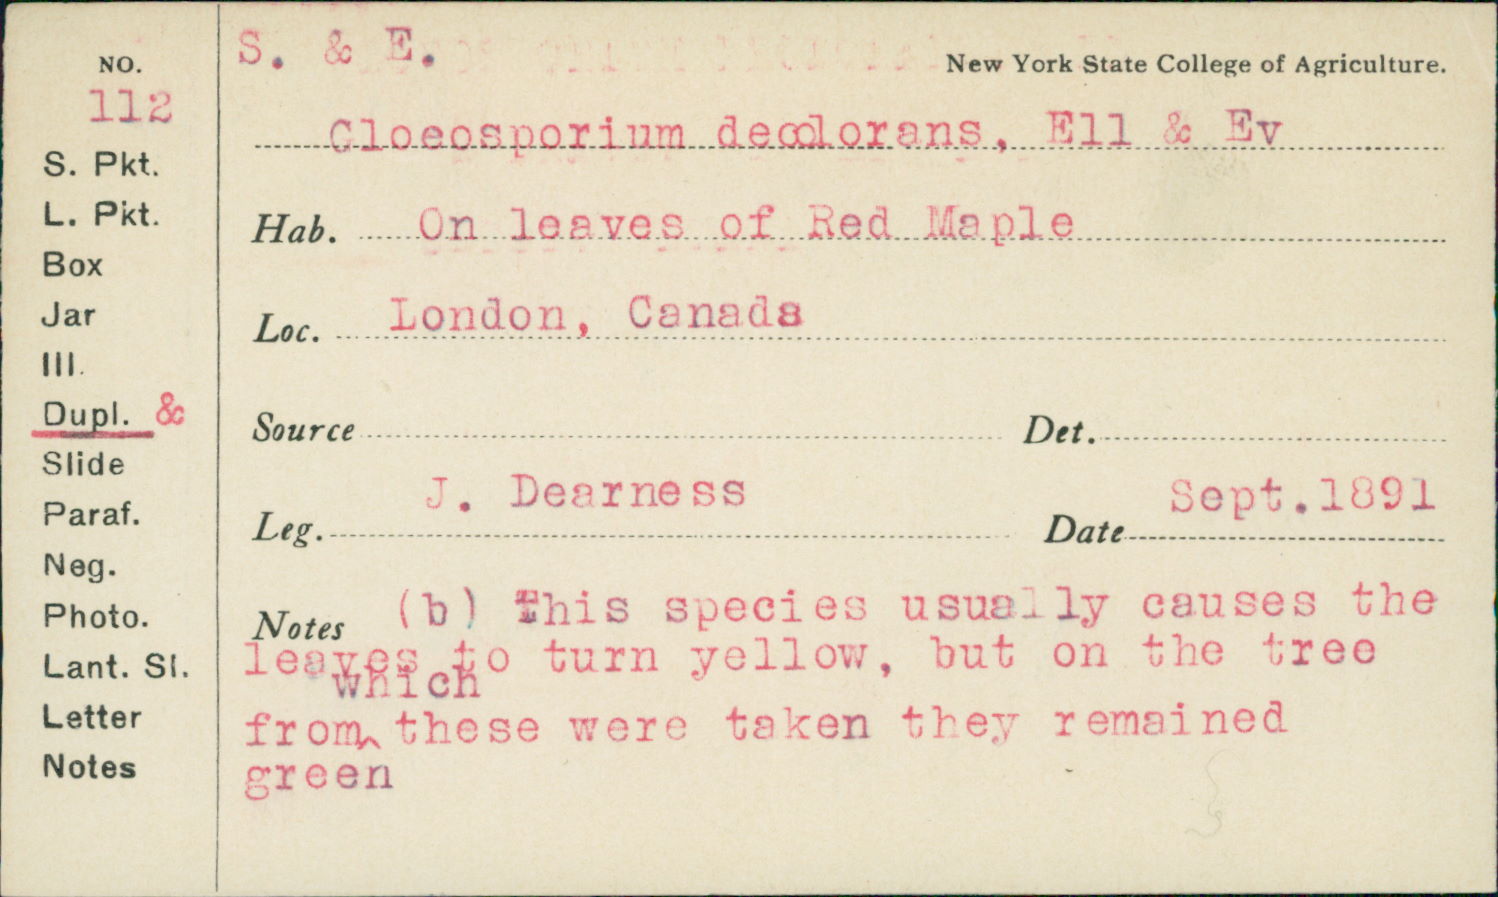 NO.
112
S. Pkt.
L. Pkt.
Box
Jar
Ill.
Dupl. &
Slide
Paraf.
Neg.
Photo.
Lant. Sl.
Letter
Notes
S. & E.
New York State College of Agriculture.
Gloeosporium decolorans, Ell & Ev
Hab. On leaves of Red Maple
Loc. London, Canada
Source Det.
Leg. J. Dearness Date Sept.1891
Notes (b) This species usually causes the
leaves to turn yellow, but on the tree
which
from‸these were taken they remained
green